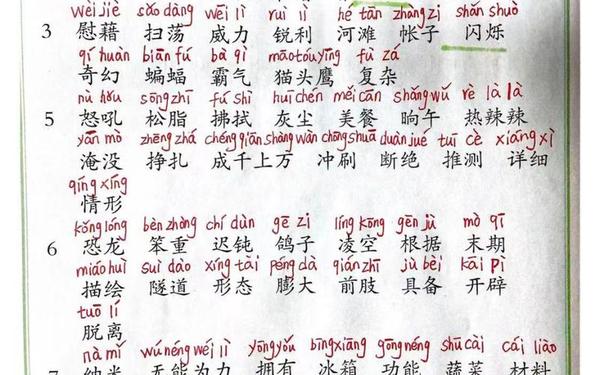 wèi jiè sǎo dàng wēi lì ruì lì hé tān zhàng zi shǎn shuò
3 慰藉 扫荡 威力 锐利 河滩 帐子 闪烁
qí huàn biān fú bà qì māo tóu yīng fù zá
奇幻 蝙蝠 霸气 猫头鹰 复杂
nù hǒu sōng zhī fú shì huī chén měi cān shǎng wǔ rè là là
5 怒吼 松脂 拂拭 灰尘 美餐 晌午 热辣辣
yān mò zhēng zhá chéng qiān shàng wàn chōng shuā duàn jué tuī cè xiáng xì
淹没 挣扎 成千上万 冲刷 断绝 推测 详细
qíng xíng
情形
kǒng lóng bèn zhòng chí dùn gē zi líng kōng gēn jù mò qī
6 恐龙 笨重 迟钝 鸽子 凌空 根据 末期
miáo huì suì dào xíng tài péng dà qián zhī jù bèi kāi pì
描绘 隧道 形态 膨大 前肢 具备 开辟
tuō lí
脱离
nà mǐ wú néng wéi lì yōng yǒu bīng xiāng gōng néng shū cài cái liào
7 纳米 无能为力 拥有 冰箱 功能 蔬菜 材料